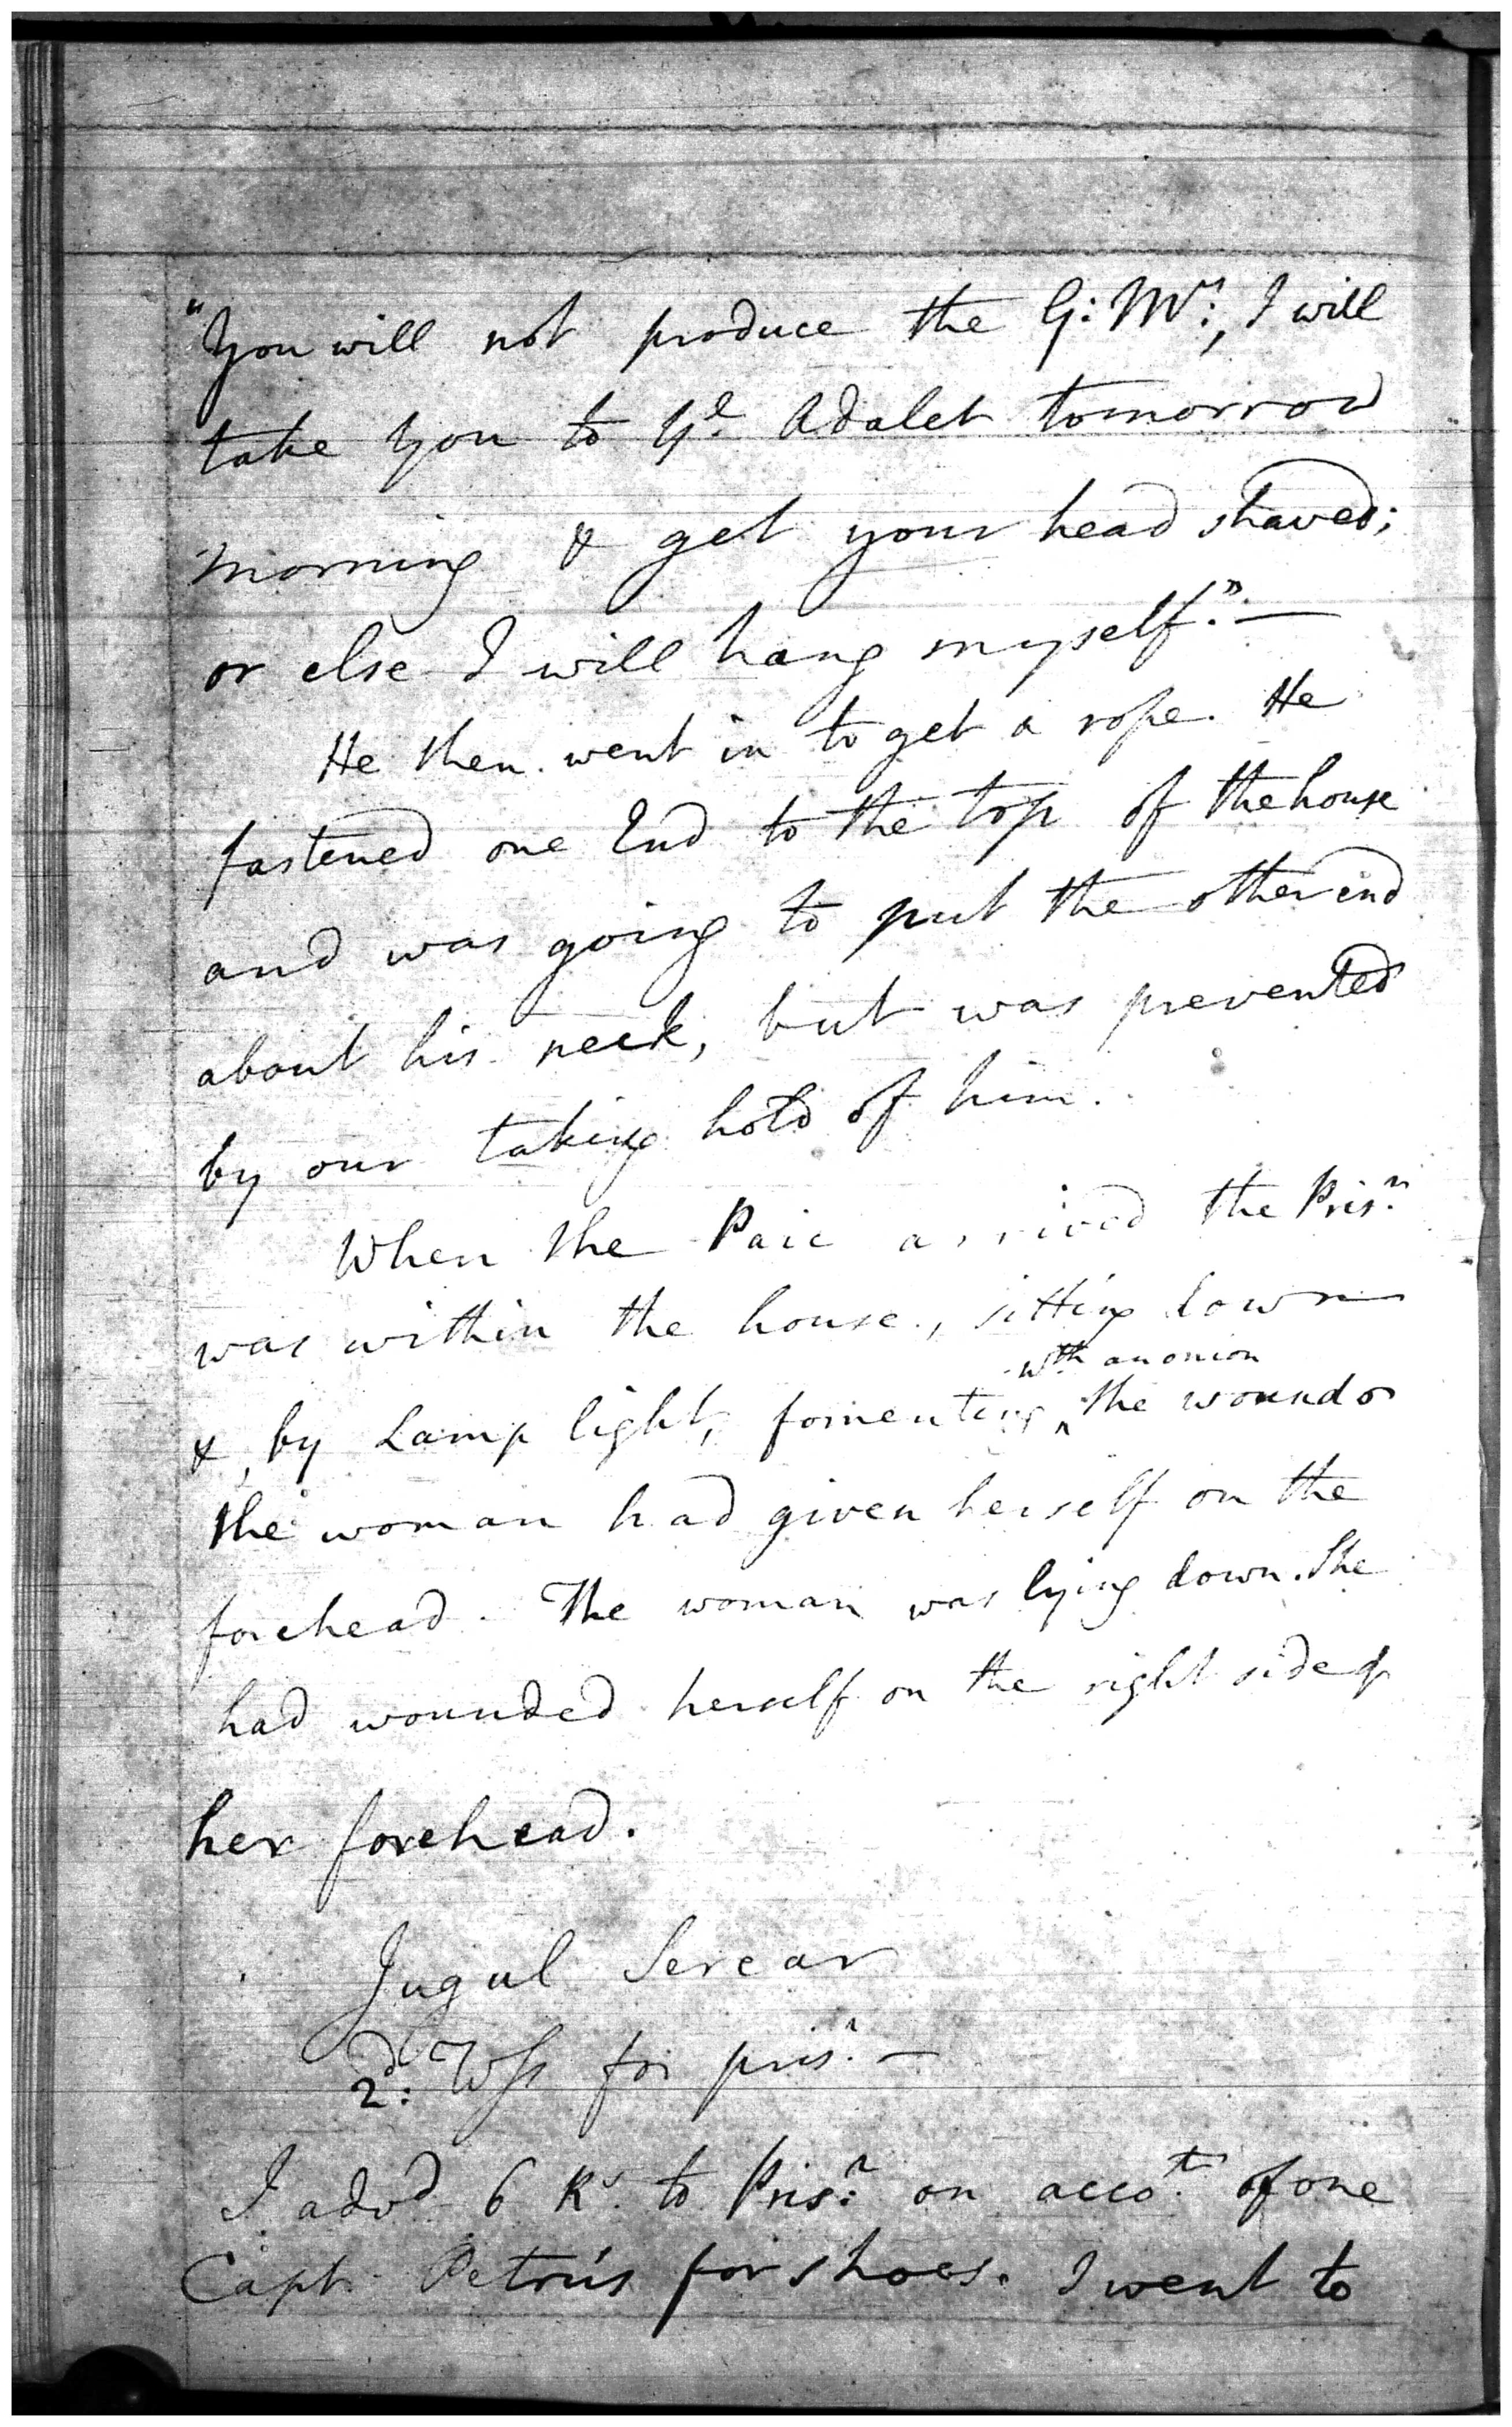 "You will not produce the G: Mr:, I will
take you to ye. Adalet tomorrow
morning & get your head shaved;
or else I will hang myself." —
He then went in to get a rope. He
fastened one End to the top of the house
and was going to put the other end
about his neck, but was prevented
by our taking hold of him.
When the Paic arrived the Prisr.
was within the house, sitting down
wth an onion
&, by Lamp light, fomenting ^ the wounds
the woman had given herself on the
forehead. The woman was lying down. She
had wounded herself on the right side of
her forehead.
Jugul Sercar
2d: Wss for prisr. —
I advd 6 Rs. to Prisr: on accot. of one
Capt. Petrus for shoes. I went to